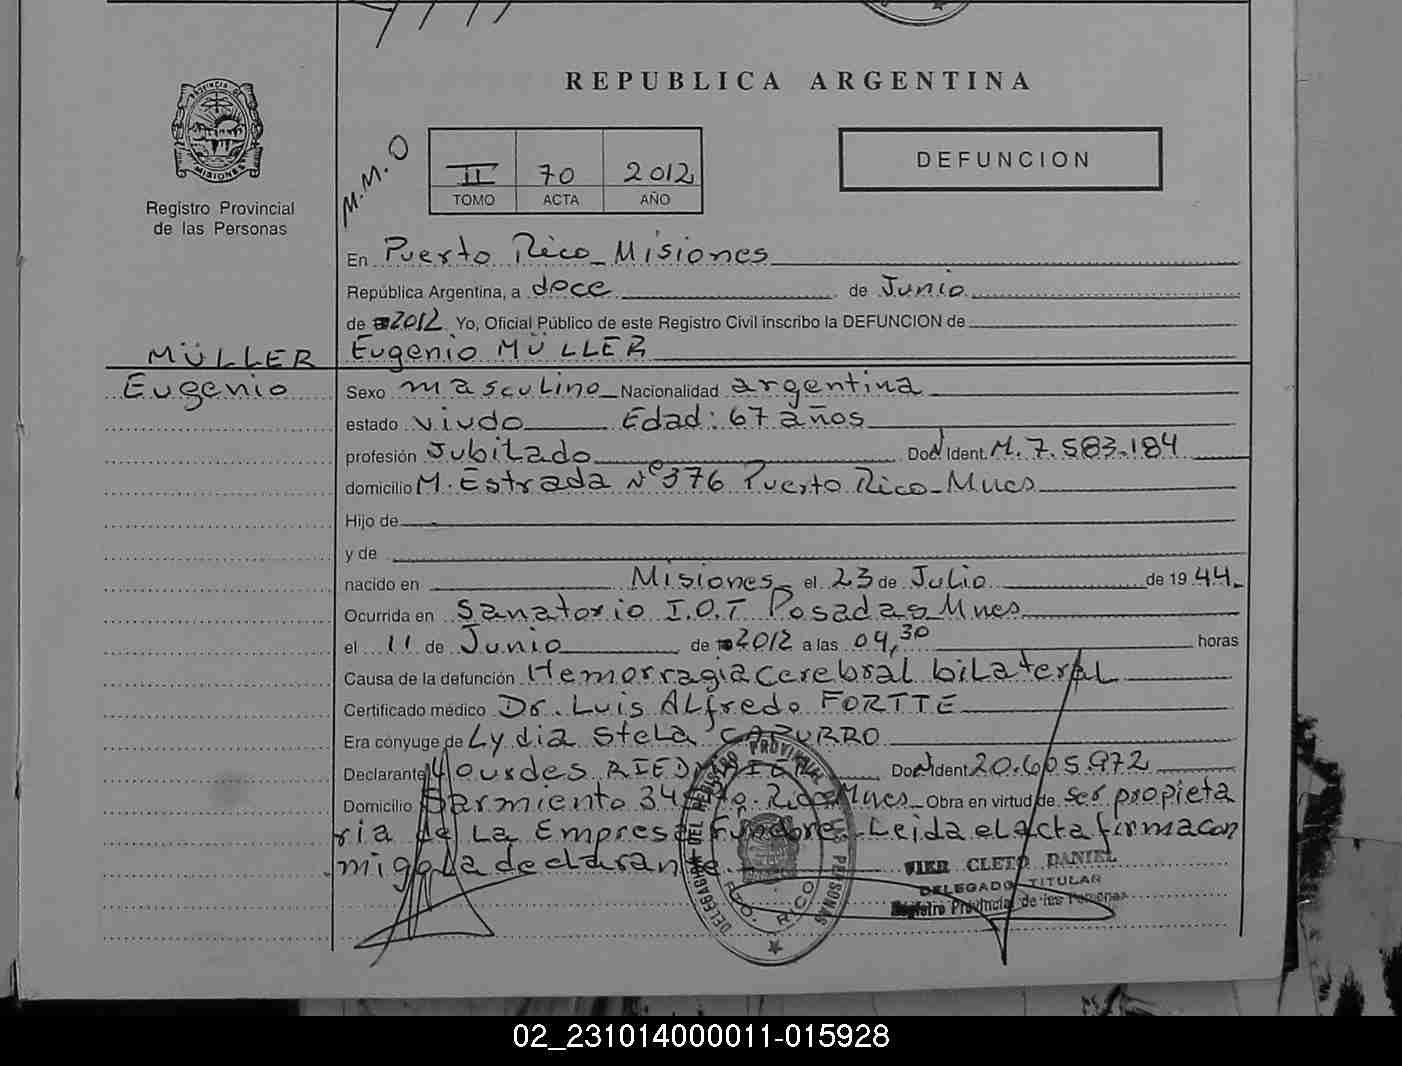 REPUBLICA ARGENTINA
PROVINCIA DE
MISIONES
Registro Provincial
de las Personas
M.M.O
II 70 2012
TOMO ACTA AÑO
DEFUNCION
En Puerto Rico - Misiones
República Argentina, a doce de Junio
de 2012 Yo, Oficial Público de este Registro Civil inscribo la DEFUNCION de
MÜLLER Eugenio MÜLLER
Eugenio Sexo masculino Nacionalidad argentina
estado viudo Edad: 67 años
profesión Jubilado Doc N Ident. M. 7.583.184
domicilio M. Estrada Nº 376 Puerto Rico - Mnes
Hijo de
y de
nacido en Misiones el 23 de Julio de 1944.
Ocurrida en Sanatorio I.O.T Posadas Mnes
el 11 de Junio de 2012 a las 04,30 horas
Causa de la defunción Hemorragia cerebral bilateral
Certificado médico Dr. Luis Alfredo FORTTE
Era cónyuge de Lydia Stela CAPURRO
Declarante Lourdes Doc N Ident 20.605.972
Domicilio Sarmiento Pto. Rico Mnes - Obra en virtud de ser propieta
ria de La Empresa Fúnebre. Leida el acta firma con
migo la declarante.
DELEGACION DEL REGISTRO PROVINCIAL DE LAS PERSONAS
PTO. RICO
VIER CLETO DANIEL
DELEGADO TITULAR
Registro Provincial de las Personas
02_231014000011-015928